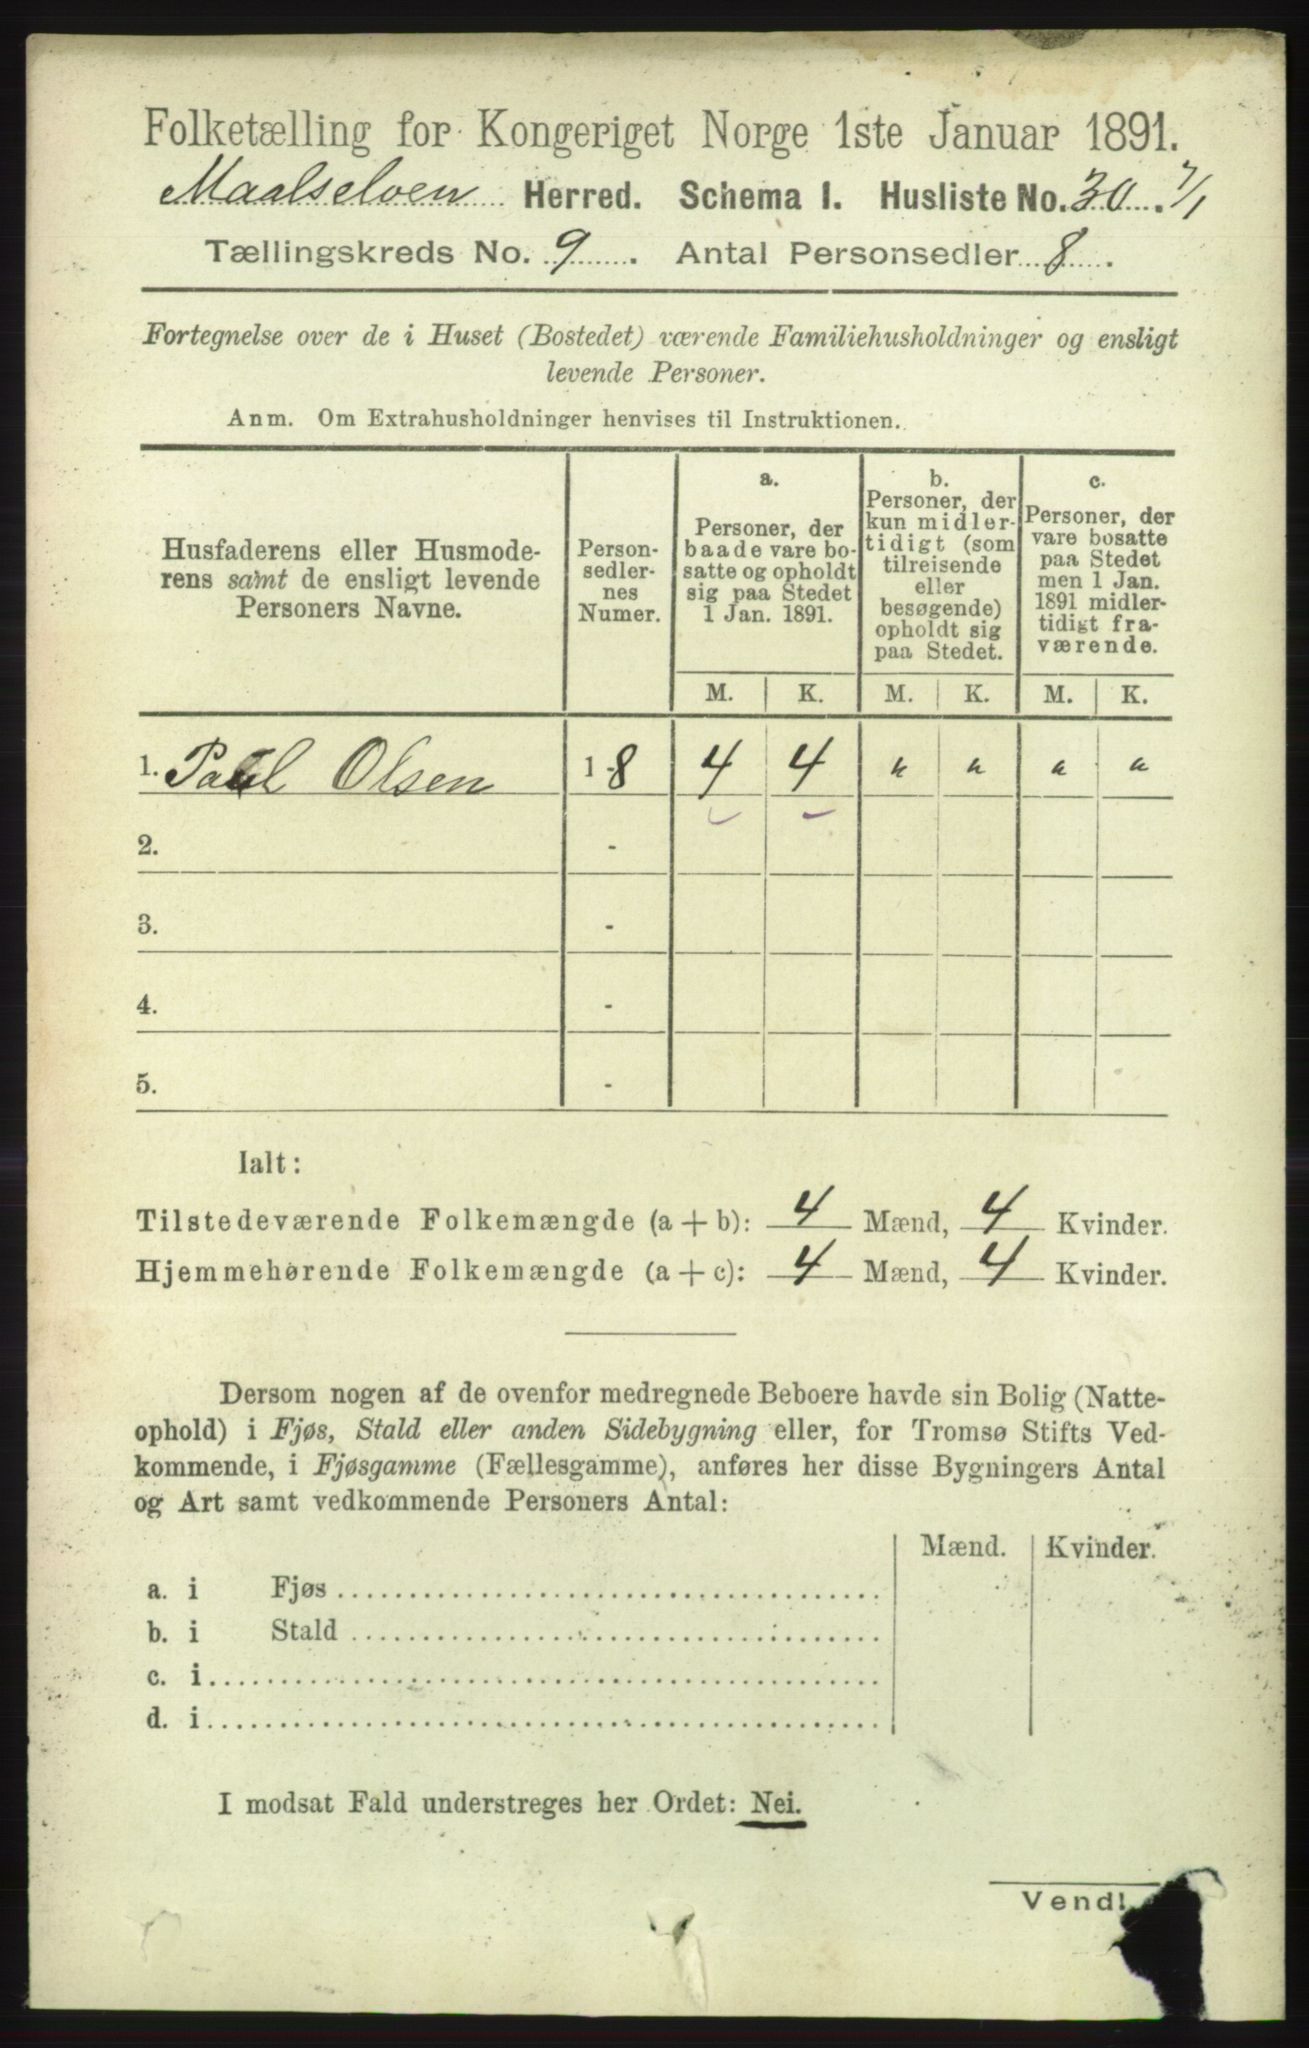 Folketælling for Kongeriget Norge 1ste Januar 1891.
Maalselven Herred. Schema I. Husliste No. 30. 7/1
Tællingskreds No. 9. Antal Personsedler 8.
Fortegnelse over de i Huset (Bostedet) værende Familiehusholdninger og ensligt
levende Personer.
Anm. Om Extrahusholdninger henvises til Instruktionen.
Husfaderens eller Husmode-
rens samt de ensligt levende
Personers Navne.
Person-
sedler-
nes
Numer.
a.
Personer, der
baade vare bo-
satte og opholdt
sig paa Stedet
1 Jan. 1891.
b.
Personer, der
kun midler-
tidigt (som
tilreisende
eller
besøgende)
opholdt sig
paa Stedet.
c.
Personer, der
vare bosatte
paa Stedet
men 1 Jan.
1891 midler-
tidigt fra-
værende.
M. K. M. K. M. K.
1. Paul Olsen 1-8 4 4 " " " "
2. -
3. -
4. -
5. -
Ialt:
Tilstedeværende Folkemængde (a + b): 4 Mænd, 4 Kvinder.
Hjemmehørende Folkemængde (a + c): 4 Mænd, 4 Kvinder.
Dersom nogen af de ovenfor medregnede Beboere havde sin Bolig (Natte-
ophold) i Fjøs, Stald eller anden Sidebygning eller, for Tromsø Stifts Ved-
kommende, i Fjøsgamme (Fællesgamme), anføres her disse Bygningers Antal
og Art samt vedkommende Personers Antal:
Mænd. Kvinder.
a. i Fjøs
b. i Stald
c. i
d. i
I modsat Fald understreges her Ordet: Nei.
Vend!